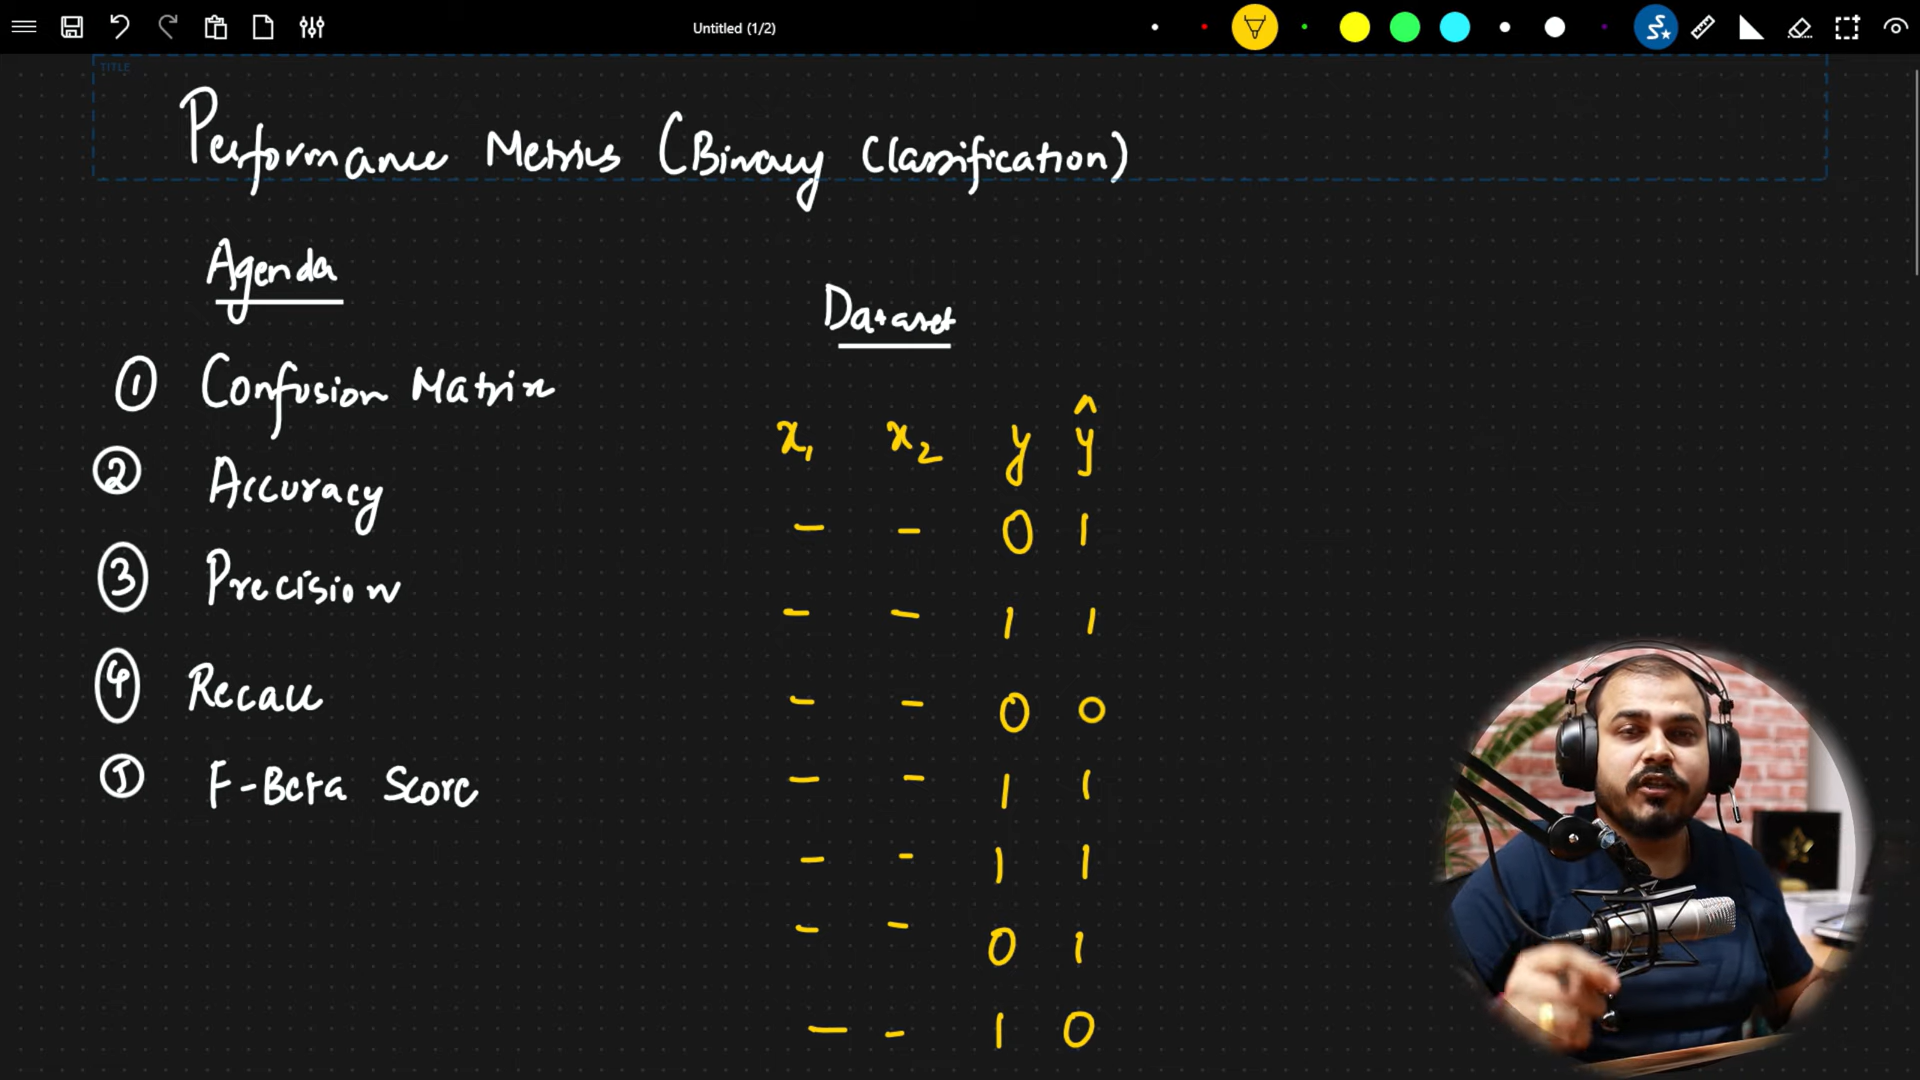 Untitled (1/2)
TITLE
Performance Metrics (Binary Classification)
Agenda
① Confusion Matrix
② Accuracy
③ Precision
④ Recall
⑤ F-Beta Score
Dataset
x₁ x₂ y ŷ
– – 0 1
– – 1 1
– – 0 0
– – 1 1
– – 1 1
– – 0 1
– – 1 0